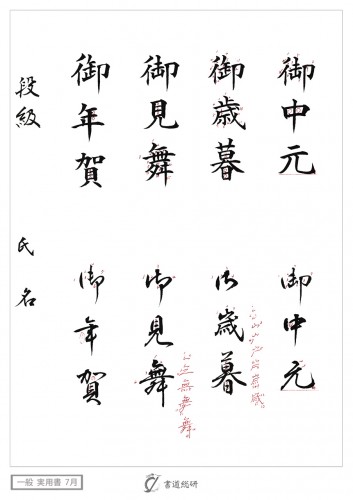 御中元
御歳暮
御見舞
御年賀
御中元
御歳暮
御見舞
御年賀
段級
氏名
一般 実用書 7月
書道総研